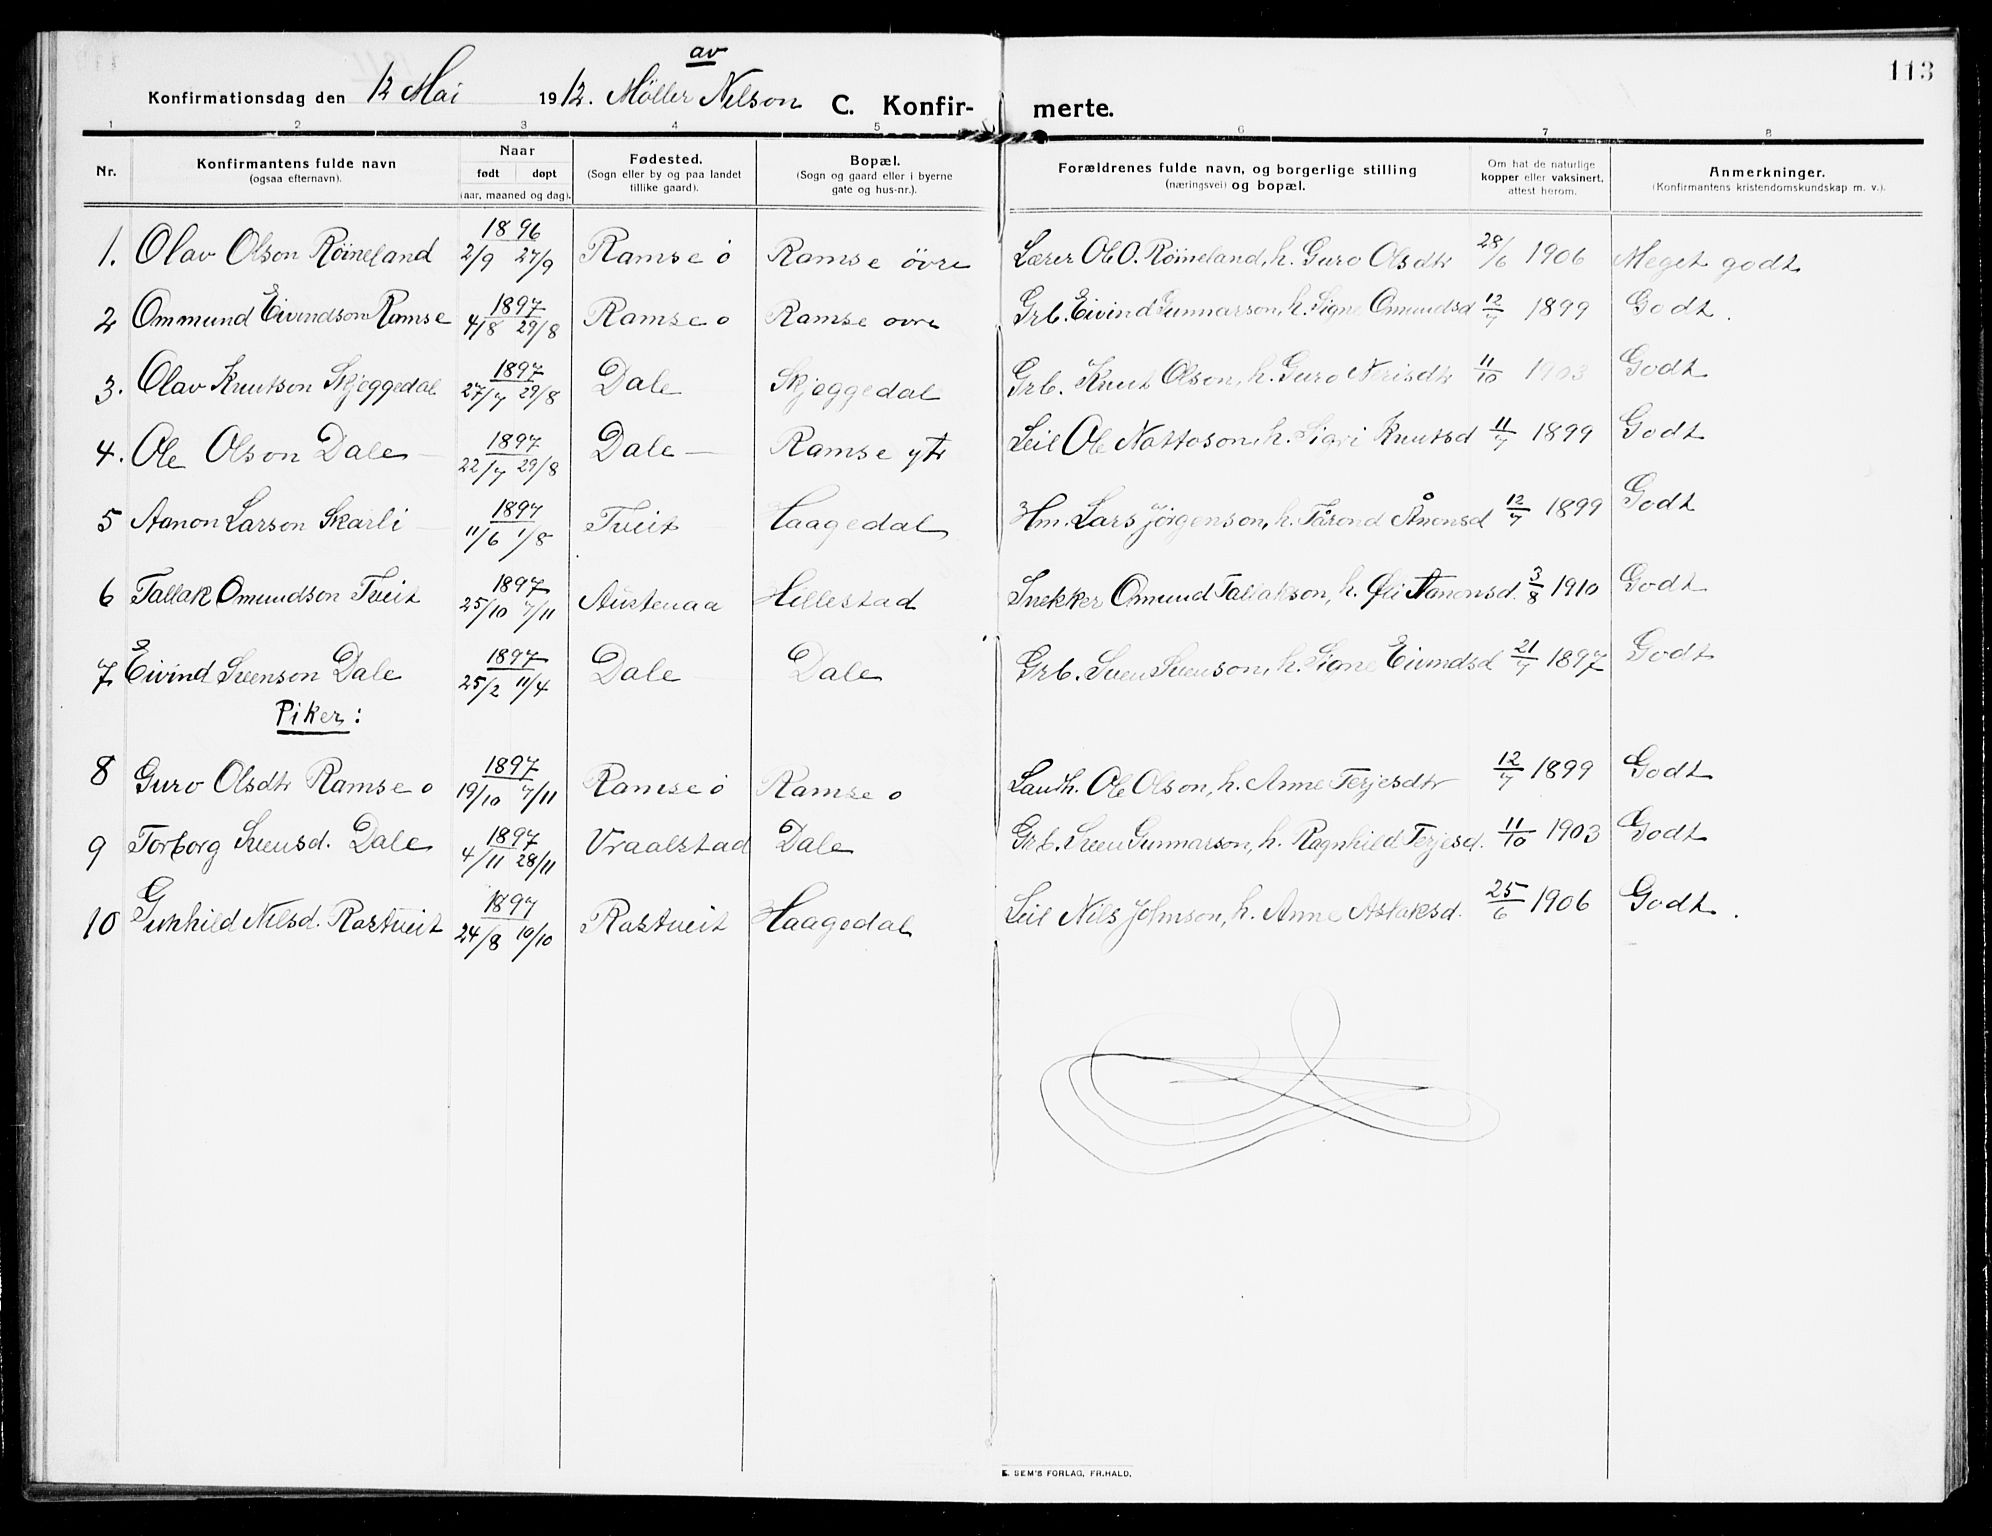 113
av
Konfirmationsdag den 12 Mai 1912. Møller Nilson C. Konfir- merte.
1 2 3 4 5 6 7 8
Nr. Konfirmantens fulde navn (ogsaa efternavn). Naar født døpt (aar, maaned og dag). Fødested. (Sogn eller by og paa landet tillike gaard). Bopæl. (Sogn og gaard eller i byerne gate og hus-nr.). Forældrenes fulde navn, og borgerlige stilling (næringsvei) og bopæl. Om hat de naturlige kopper eller vaksinert, attest herom. Anmerkninger. (Konfirmantens kristendomskundskap m. v.).
1. Olav Olson Röineland 1896 2/9 27/9 Ramse ö Ramse övre Lærer Ole O. Röineland, h. Guro Olsdtr 28/6 1906 Meget godt
2 Ommund Eivindson Ramse 1897 4/8 29/8 Ramse o Ramse ovre Grb. Eivind Gunnarson, h. Signe Omundsd 12/7 1899 Godt.
3. Olav Knutson Skjeggedal 1897 27/7 29/8 Dale Skjeggedal Grb. Knut Olson, h. Guro Nerisdtr 11/10 1903 Godt
4. Ole Olson Dale 1897 22/7 29/8 Dale Ramse ytr Leil Ole Nottoson, h. Sigri Knutsd 11/7 1899 Godt
5 Aanon Larson Skarli 1897 11/6 1/8 Tveit Haagedal Hm. Lars Jörgenson, h. Tårond Ånonsd 12/7 1899 Godt
6 Tallak Omundson Tveit 1897 25/10 7/11 Austenaa Hillestad Snekker Omund Tallakson, h. Aanonsd. 3/8 1910 Godt
7 Eivind Svenson Dale 1897 25/2 11/4 Dale Dale Grb. Sven Svenson, h. Signe Eivindsd 21/7 1897 Godt
Piker:
8 Guro Olsdtr Ramse o 1897 19/10 7/11 Ramse ö Ramse o Landh. Ole Olson, h. Anne Terjesdtr 12/7 1899 Godt
9 Torborg Svensd. Dale 1897 4/11 28/11 Vraalstad Dale Grb. Sven Gunnarson, h. Ragnhild Terjesd. 11/10 1903 Godt
10 Gunhild Nilsd. Rostveit 1897 24/8 10/10 Rostveit Haagedal Leil Nils Johnson, h. Anne Aslaksd. 25/6 1906 Godt.
E. SEM'S FORLAG, FR.HALD.